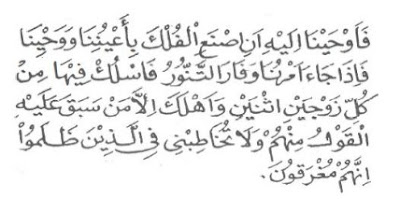 فَاَوْحَيْنَا اِلَيْهِ اَنِ اصْنَعِ الْفُلْكَ بِاَعْيُنِنَا وَوَحْيِنَا
فَاِذَا جَاءَ اَمْرُنَا وَفَارَ التَّنُّورُ فَاسْلُكْ فِيْهَا مِنْ
كُلٍّ زَوْجَيْنِ اثْنَيْنِ وَاَهْلَكَ اِلَّا مَنْ سَبَقَ عَلَيْهِ
الْقَوْلُ مِنْهُمْ وَلَا تُخَاطِبْنِى فِى الَّذِيْنَ ظَلَمُوْا
اِنَّهُمْ مُغْرَقُوْنَ.